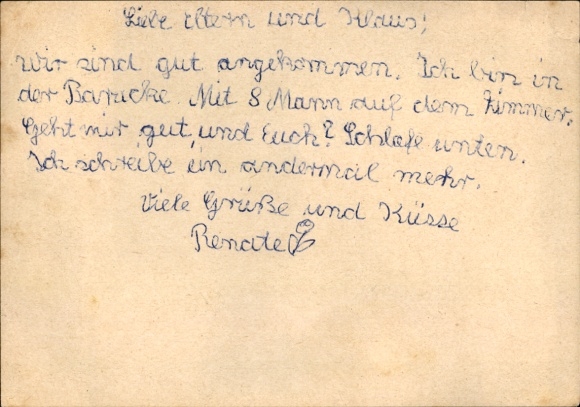 Liebe Eltern und Klaus!
Wir sind gut angekommen. Ich bin in
der Baracke. Mit 8 Mann auf dem Zimmer.
Geht mir gut, und Euch? Schlafe unten.
Ich schreibe ein andermal mehr.
Viele Grüße und Küsse
Renate